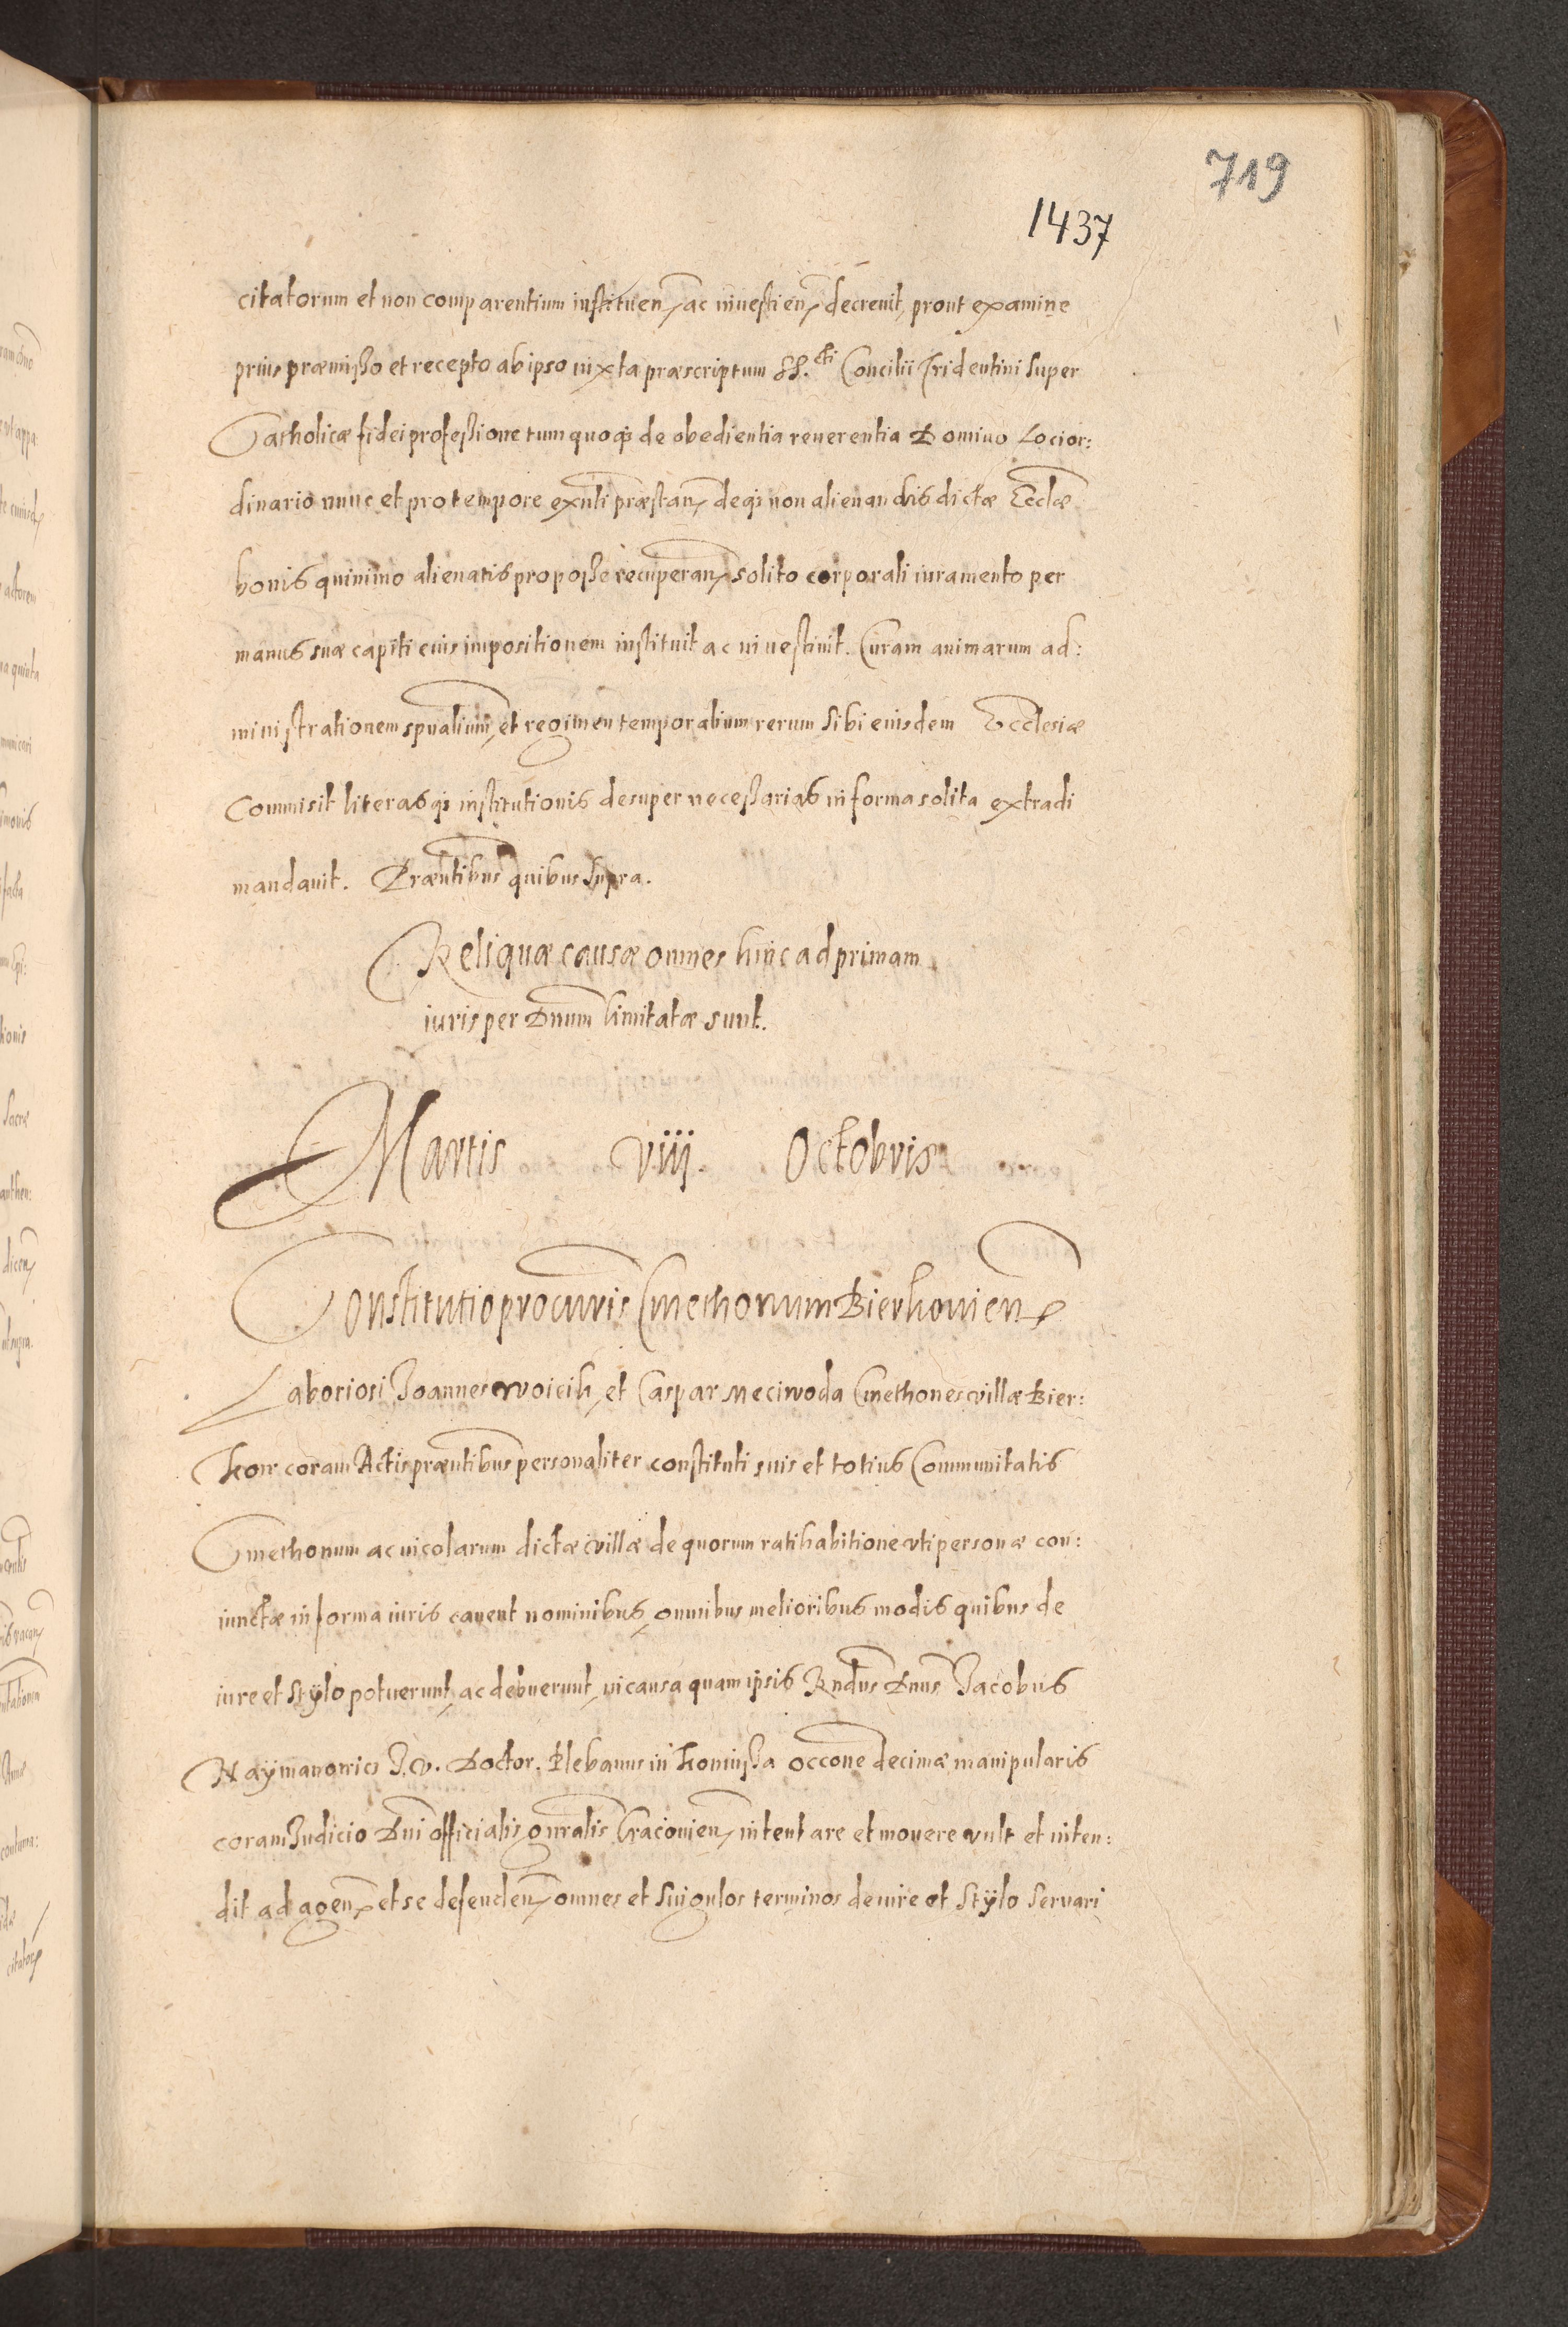 719
1437
citatorum et non comparentium instituen, ac investien, decrevit, prout examine
prius præmisso et recepto ab ipso iuxta præscriptum SS.cti Concilii Tridentini super
Catholicæ fidei professione tum quoq; de obedientia reverentia Domino Loci or:
dinario nunc et pro tempore exnti præstan, deq; non alienandis dictæ Ecclæ
bonis quinimo alienatis pro posse recuperan, solito corporali iuramento per
manus suæ capiti eius impositionem instituit ac investivit. Curam animarum ad:
ministrationem spualium, et regimen temporalium rerum sibi eiusdem Ecclesiæ
Commisit literasq; institutionis desuper necessarias in forma solita extradi
mandavit. Præntibus quibus supra.
Reliquæ causæ omnes hinc ad primam
iuris per Dnum limitatæ sunt.
Martis viij Octobris
Constitutio procuris Cmethonum Bierkovien,
Laboriosi Joannes Woicih, et Caspar Meciwoda Cmethones villæ Bier:
kow coram Actis præntibus personaliter constituti suis et totius Communitatis
Cmethonum ac incolarum dictæ villæ de quorum ratihabitione vti personæ con:
iunctæ in forma iuris cavent nominibus, omnibus melioribus modis quibus de
iure et stÿlo potuerunt, ac debuerunt, in causa quam ipsis Rndus Dnus Jacobus
Naÿmanowicz J. V. Doctor. Plebanus in Koniussa occone decimæ manipularis
coram Judicio Dni officialis gnralis Cracovien, intentare et movere vult et inten:
dit ad agen, et se defenden, omnes et singulos terminos de iure et stÿlo servari